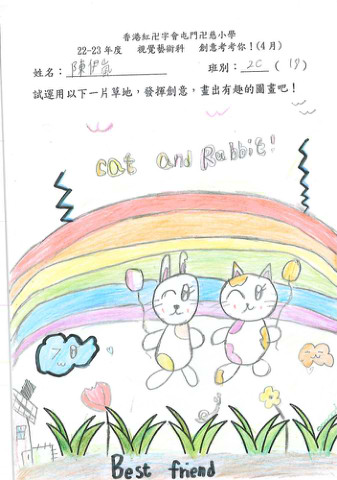 香港紅卍字會屯門卍慈小學
22-23年度 視覺藝術科 創意考考你!(4月)
姓名: 陳伊嵐 班別: 2C (18)
試運用以下一片草地,發揮創意,畫出有趣的圖畫吧!
cat and Rabbit!
Best friend